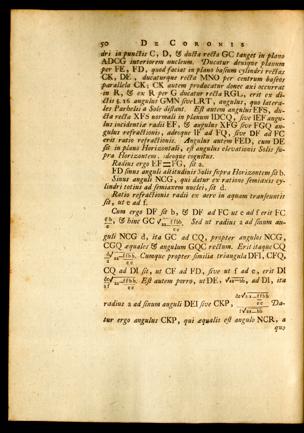 50 DE CORONIS
dri in punctis C, D, & ducta recta GC tanget in plano
ADCG interiorem nucleum. Ducatur denique planum
per FE, FD, quod faciat in plano basium cylindri rectas
CK, DE, ducaturque recta MNO per centrum baseos
parallela CK; CK autem producatur donec axi occurrat
in R, & ex R per G ducatur recta RGL, erit ex di-
ctis §.16 angulus GMN sive LRT, angulus, quo latera-
les Parhelii a Sole distant. Est autem angulus EFS, du-
cta recta XFS normali in planum IDCQ, sive IEF angu-
lus incidentiæ radii EF, & angulus XFG sive FGQ an-
gulus refractionis, adeoque IF ad FQ, sive DF ad FC
erit ratio refractionis. Angulus autem FED, cum DE
sit in plano Horizontali, est angulus elevationis Solis su-
pra Horizontem. ideoque cognitus.
Radius ergo EF=FG, sit a.
FD sinus anguli altitudinis Solis supra Horizontem sit b.
Sinus anguli NCG, qui datur ex ratione semiaxis cy-
lindri totius ad semiaxem nuclei, sit d.
Ratio refractionis radii ex aere in aquam transeuntis
sit, ut e ad f.
Cum ergo DF sit b, & DF ad FC ut e ad f erit FC
fb/e, & hinc GC √aa—ffbb/ee. Sed ut radius a ad sinum an-
guli NCG d, ita GC ad CQ, propter angulos NCG,
CGQ æquales & angulum GQC rectum. Erit itaque CQ
d/a √aa—ffbb/ee. Cumque propter similia triangula DFI, CFQ,
CQ ad DI sit, ut CF ad FD, sive ut f ad e, erit DI
de/af √aa—ffbb/ee. Est autem porro, ut DE, √aa—bb, ad DI, ita
radius a ad sinum anguli DEI sive CKP, de√aa—ffbb/ee / f√aa—bb. Da-
tur ergo angulus CKP, qui æqualis est angulo NCR, a
quo